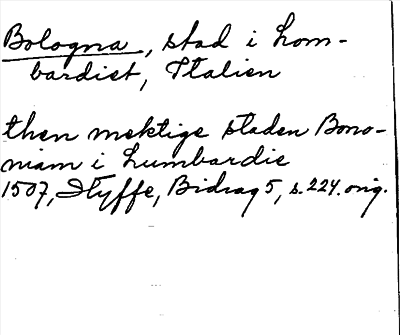 Bologna, stad i Lom-
bardiet, Italien
then mektige staden Bono-
niam i Lumbardie
1507, Styffe, Bidrag 5, s. 224. orig.